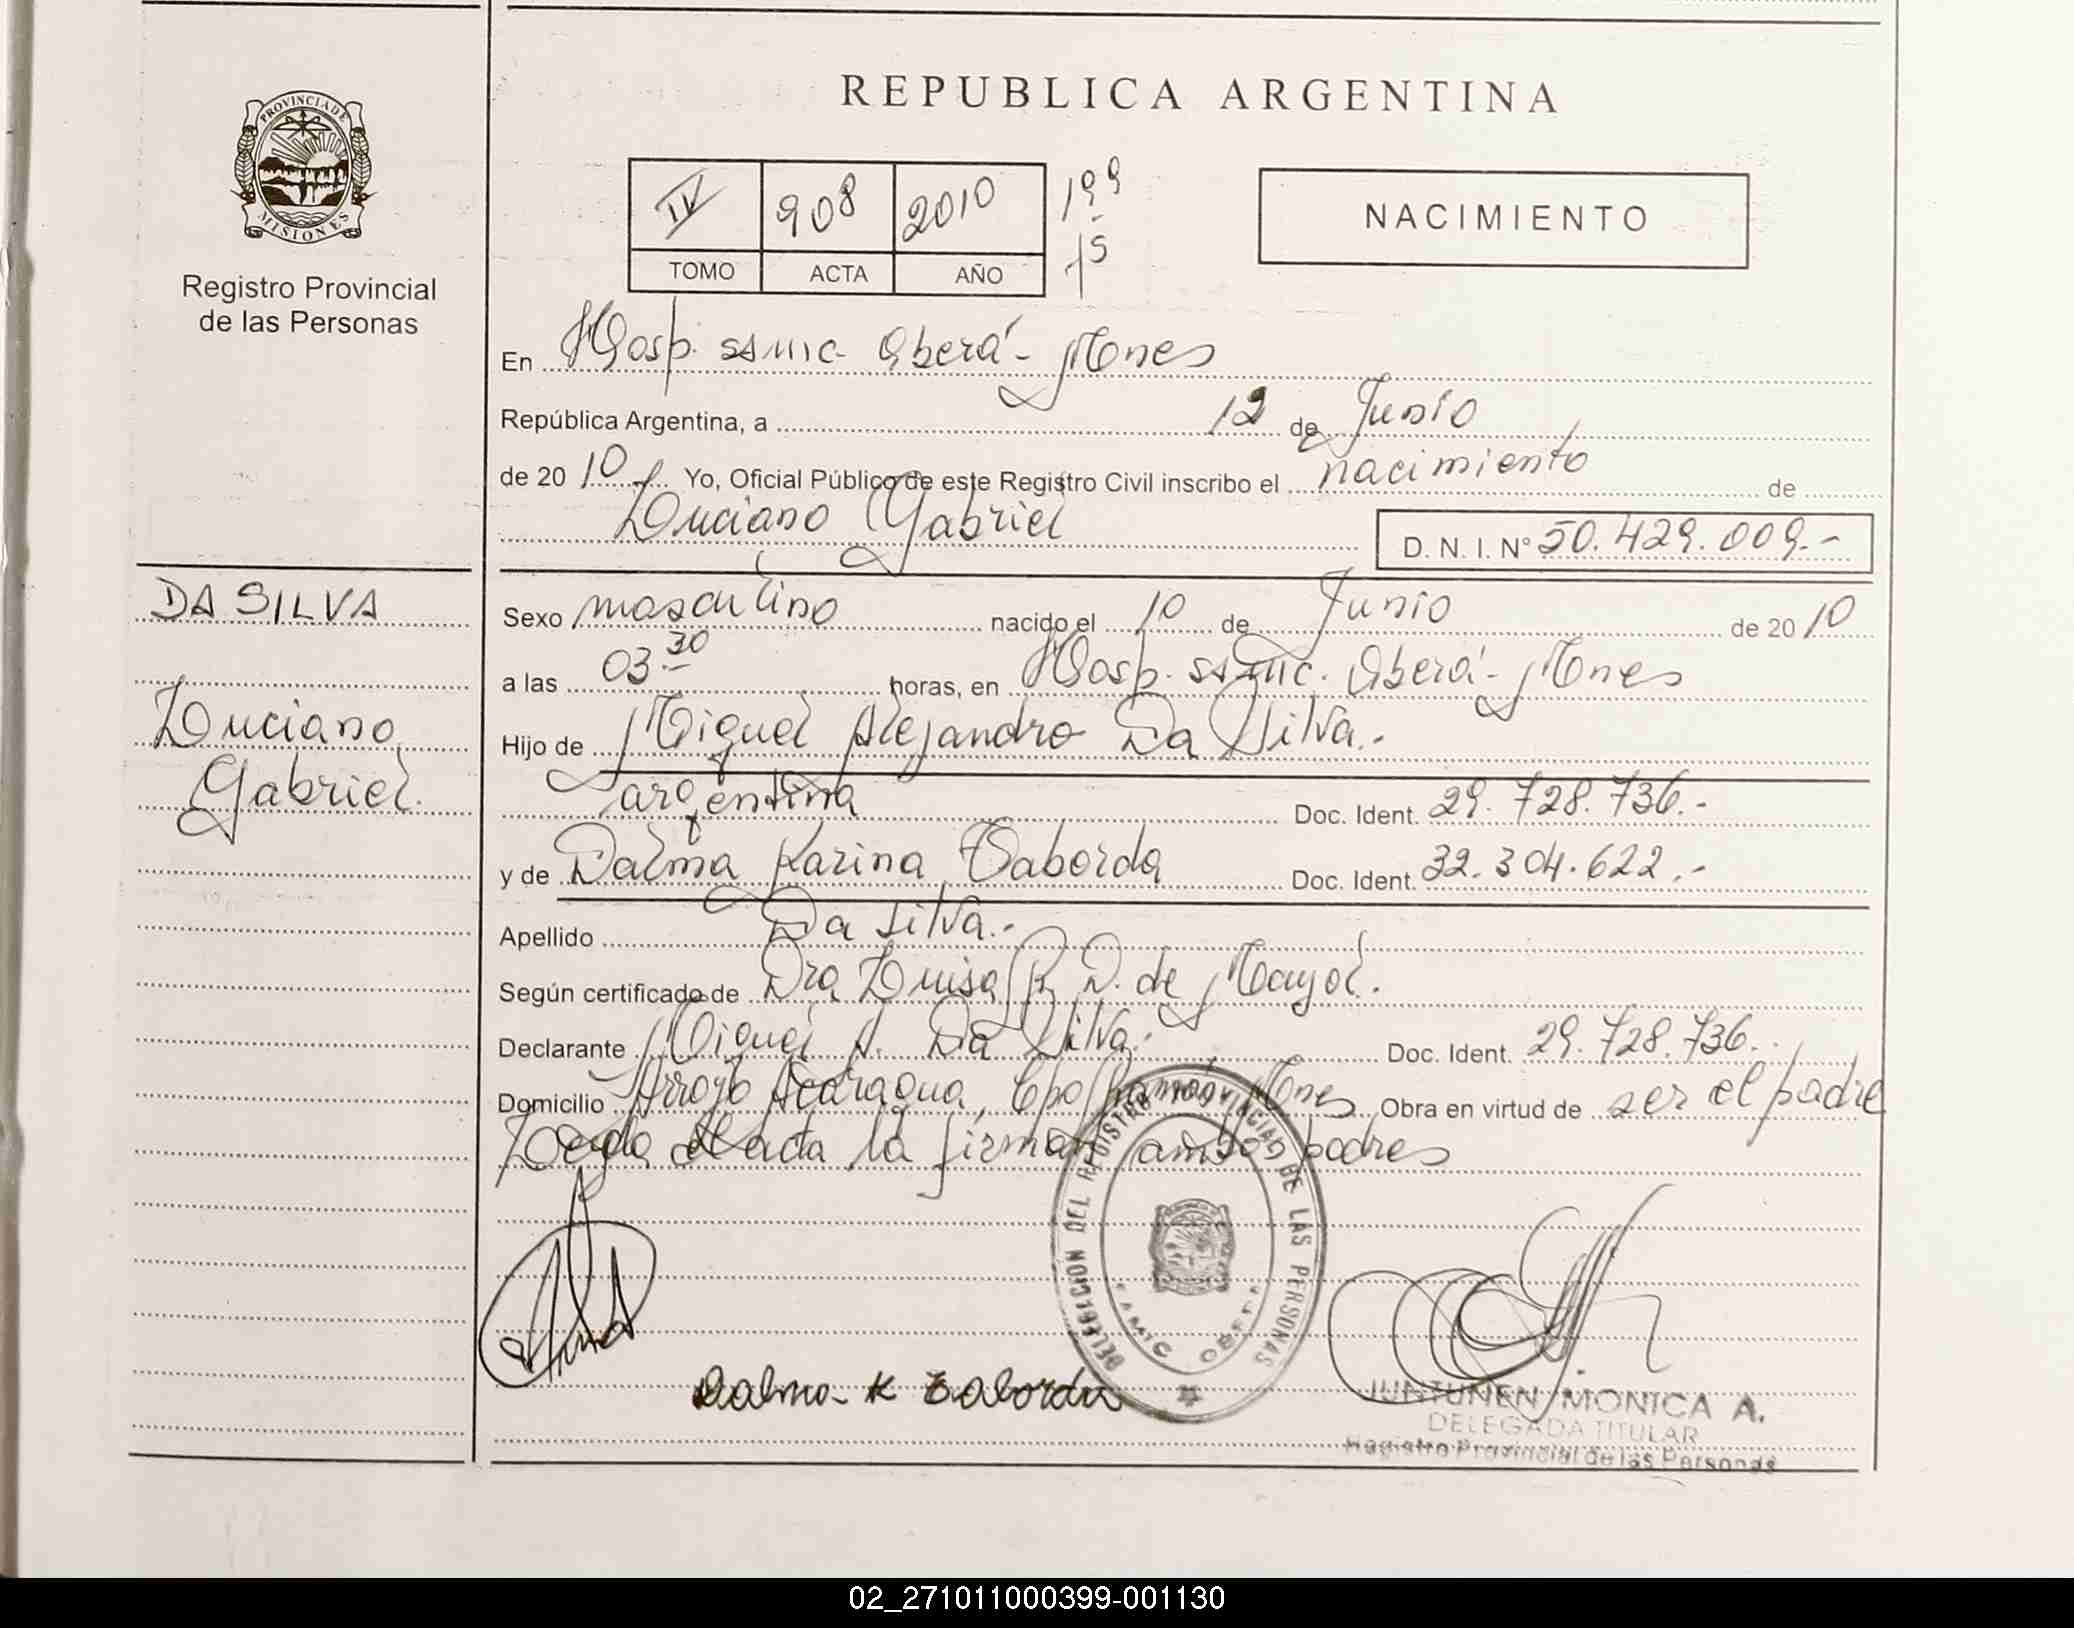 REPUBLICA ARGENTINA
PROVINCIA DE
MISIONES
Registro Provincial
de las Personas
IV 908 2010 199
15
TOMO ACTA AÑO
NACIMIENTO
En Hosp. SSMIC - Oberá - Mnes
República Argentina, a 12 de Junio
de 2010 Yo, Oficial Público de este Registro Civil inscribo el nacimiento de
Luciano Gabriel D. N. I. Nº 50.429.009.-
DA SILVA
Luciano
Gabriel.
Sexo masculino nacido el 10 de Junio de 2010
a las 03.30 horas, en Hosp. SSMIC. Oberá - Mnes
Hijo de Miguel Alejandro Da Silva.-
argentina Doc. Ident. 29.728.736.-
y de Dalma Karina Taborda Doc. Ident. 32.304.622.-
Apellido Da Silva.-
Según certificado de Dra Luisa R. D. de Mayol.
Declarante Miguel A. Da Silva.- Doc. Ident. 29.728.736.-
Domicilio Arroyo Acaragua, Cpo Ramón Mnes Obra en virtud de ser el padre
Leída el acta la firman ambos padres
DELEGACION DEL REGISTRO PROVINCIAL DE LAS PERSONAS
OBERA
Dalma K Taborda
JUNTUNEN MONICA A.
DELEGADA TITULAR
Registro Provincial de las Personas
02_271011000399-001130